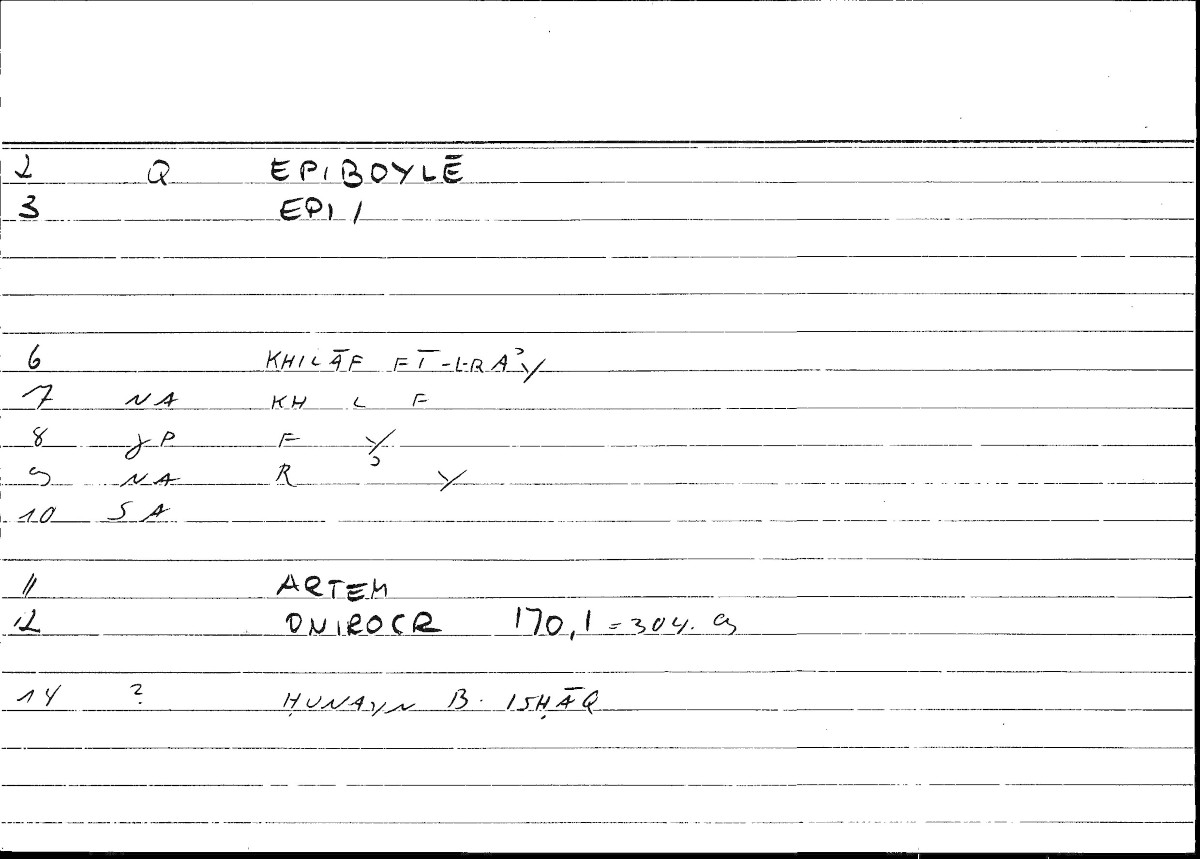 2 Q EPIBOYLĒ
3 EPI /
6 KHILĀF FĪ-L-RAʾY
7 NA KH L F
8 JP F Y
9 NA R ʾ Y
10 SA
11 ARTEM
12 ONIROCR 170,1 = 304. 9
14 ? ḤUNAYN B. ISḤĀQ